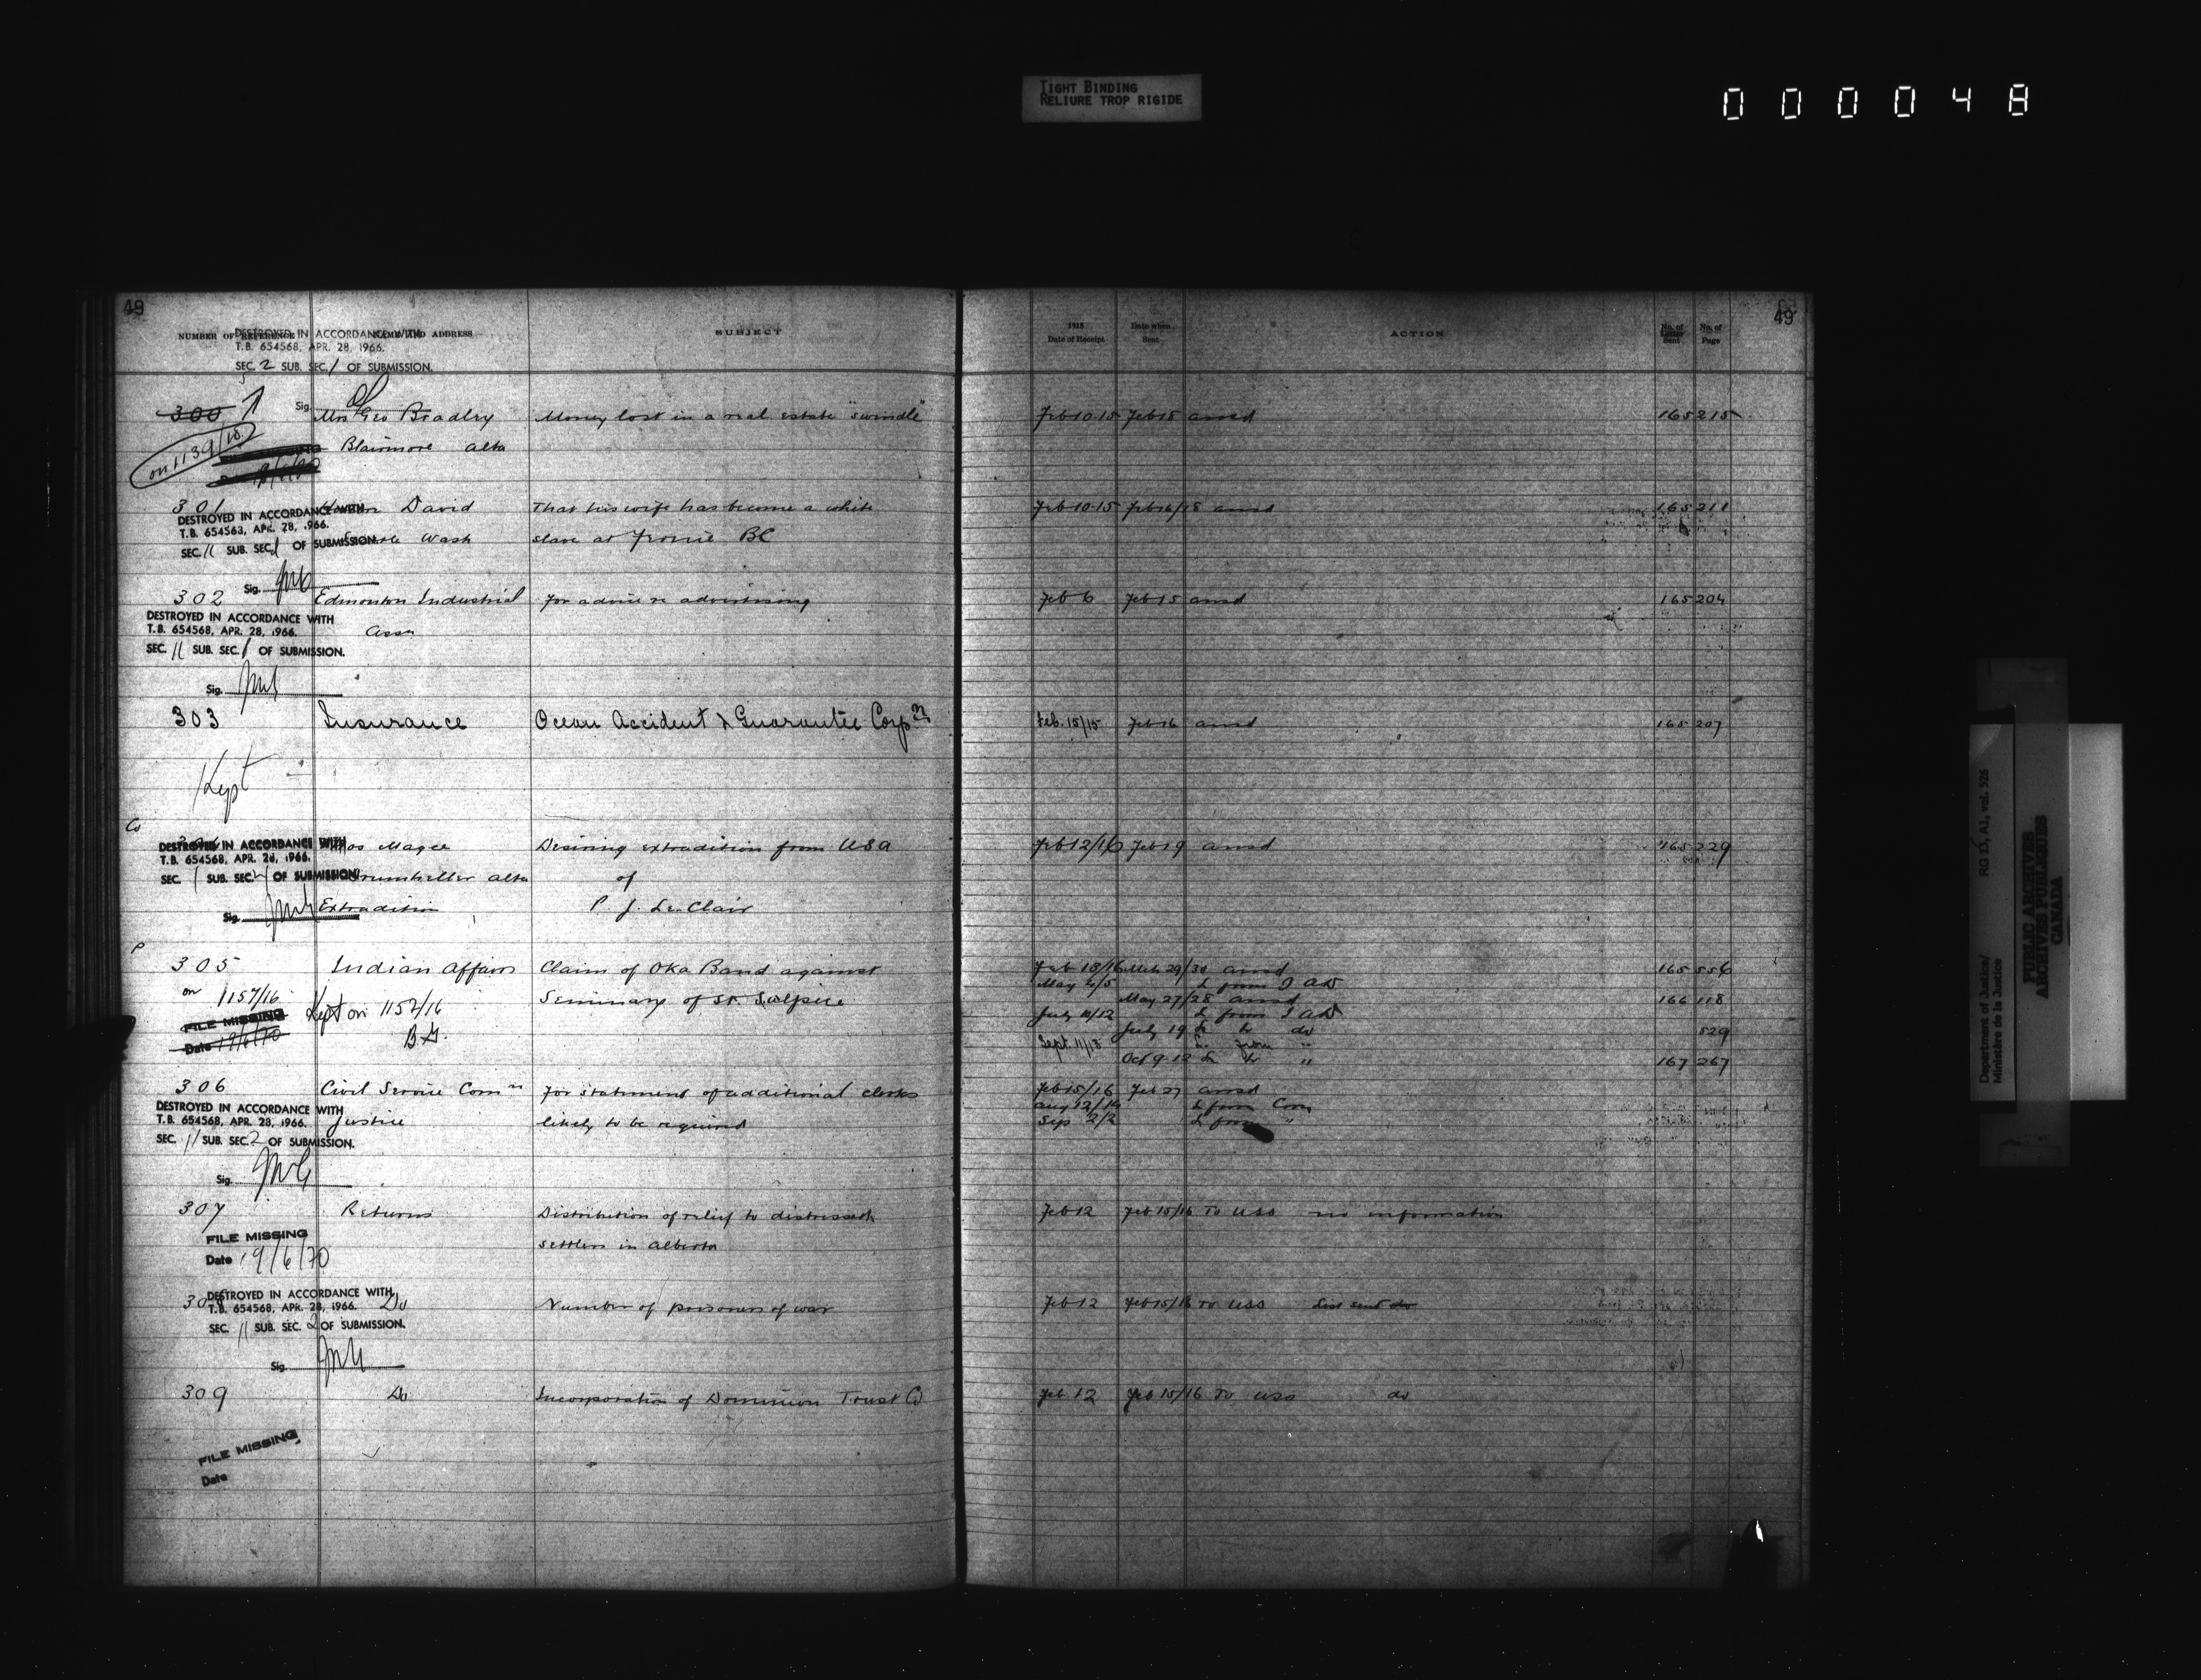 TIGHT BINDING
RELIURE TROP RIGIDE
000048
49
49
NUMBER OF REFERENCE NAME AND ADDRESS SUBJECT 1915 Date of Receipt Date when Sent ACTION No. of Letter Sent No. of Page
DESTROYED IN ACCORDANCE WITH
T.B. 654568, APR. 28, 1966.
SEC. 2 SUB. SEC. 1 OF SUBMISSION.
Sig.
300 Mrs Geo Bradley Money lost in a real estate "swindle" Feb 10-15 Feb 18 ansd 165 215
on 1139/15 Blairmore Alta
301 David That his wife has become a white Feb 10-15 Feb 16/18 ansd 165 211
DESTROYED IN ACCORDANCE WITH
T.B. 654563, APR. 28, 1966.
Wash slave at Fernie BC
SEC. 11 SUB. SEC. 1 OF SUBMISSION.
Sig.
302 Edmonton Industrial For advice re advertising Feb 6 Feb 15 ansd 165 204
DESTROYED IN ACCORDANCE WITH
T.B. 654568, APR. 28, 1966. Assn
SEC. 11 SUB. SEC. 1 OF SUBMISSION.
Sig.
303 Insurance Ocean Accident & Guarantee Corpn Feb. 15/15 Feb 16 ansd 165 207
Kept
Co
Magee Desiring extradition from USA Feb 12/16 Feb 19 ansd 165 229
DESTROYED IN ACCORDANCE WITH
T.B. 654568, APR. 28, 1966.
Drumheller Alta of
SEC. 1 SUB. SEC. OF SUBMISSION.
Sig. Extradition P. J. Le Clair
P
305 Indian Affairs Claim of Oka Band against Feb 18/16 Mch 29/30 ansd 165 556
May 4/5 L from I AD
on 1157/16 Kept on 1157/16 Seminary of St. Sulpice May 27/28 ansd 166 118
FILE MISSING July 10/12 L from I AD
Date 19/6/70 B.G. July 19 L to do 529
Sept. 11/13 L. from "
Oct 9-12 L to " 167 267
306 Civil Service Comn For statement of additional clerks Feb 15/16 Feb 27 ansd
DESTROYED IN ACCORDANCE WITH Aug 12/14 L from Com
T.B. 654568, APR. 28, 1966. Justice likely to be required Sep 2/2 L from "
SEC. 11 SUB. SEC. 2 OF SUBMISSION.
Sig.
307 Returns Distribution of relief to distressed Feb 12 Feb 15/16 To USS no information
FILE MISSING settlers in Alberta
Date 19/6/70
DESTROYED IN ACCORDANCE WITH
308 Do Number of prisoners of war Feb 12 Feb 15/16 To USS List sent do
T.B. 654568, APR. 28, 1966.
SEC. 11 SUB. SEC. 2 OF SUBMISSION.
Sig.
309 Do Incorporation of Dominion Trust Co Feb 12 Feb 15/16 To USS do
FILE MISSING
Date
Department of Justice/ RG 13, A1, vol. 526
Ministère de la Justice
PUBLIC ARCHIVES
ARCHIVES PUBLIQUES
CANADA